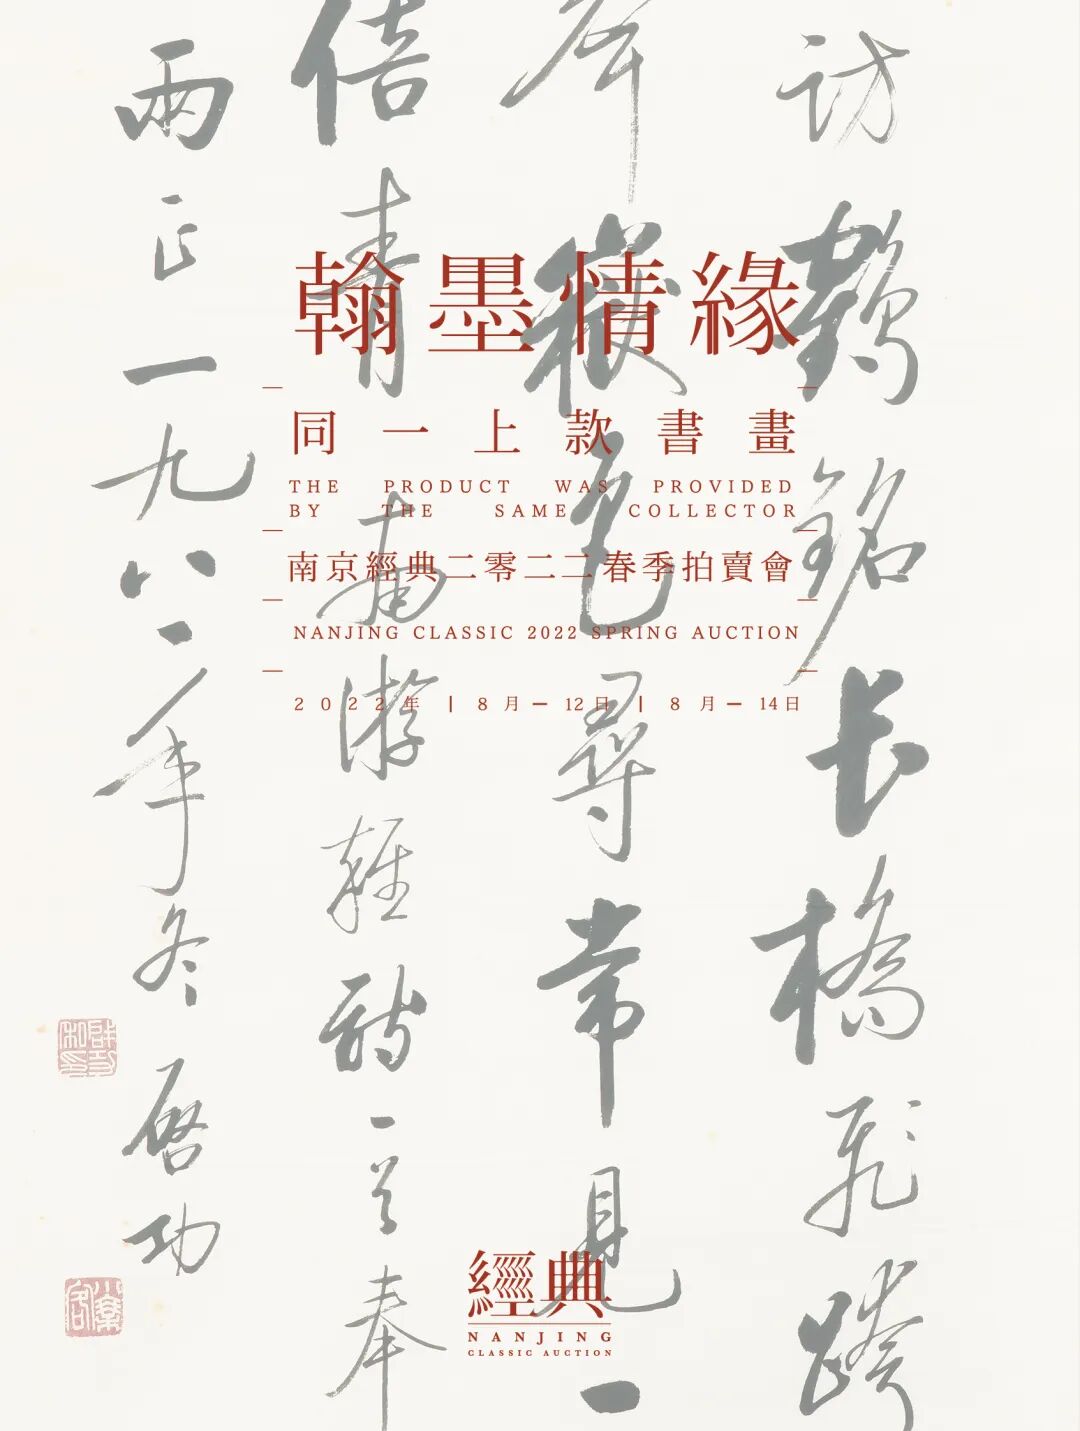 訪鶴銘长橋飛跨
嶽色尋常見一
倍青南游雜詩一首奉
兩正一九八一年冬啓功
翰墨情緣
同一上款書畫
THE PRODUCT WAS PROVIDED
BY THE SAME COLLECTOR
南京經典二零二二春季拍賣會
NANJING CLASSIC 2022 SPRING AUCTION
2022年 | 8月—12日 | 8月—14日
經典
NANJING
CLASSIC AUCTION